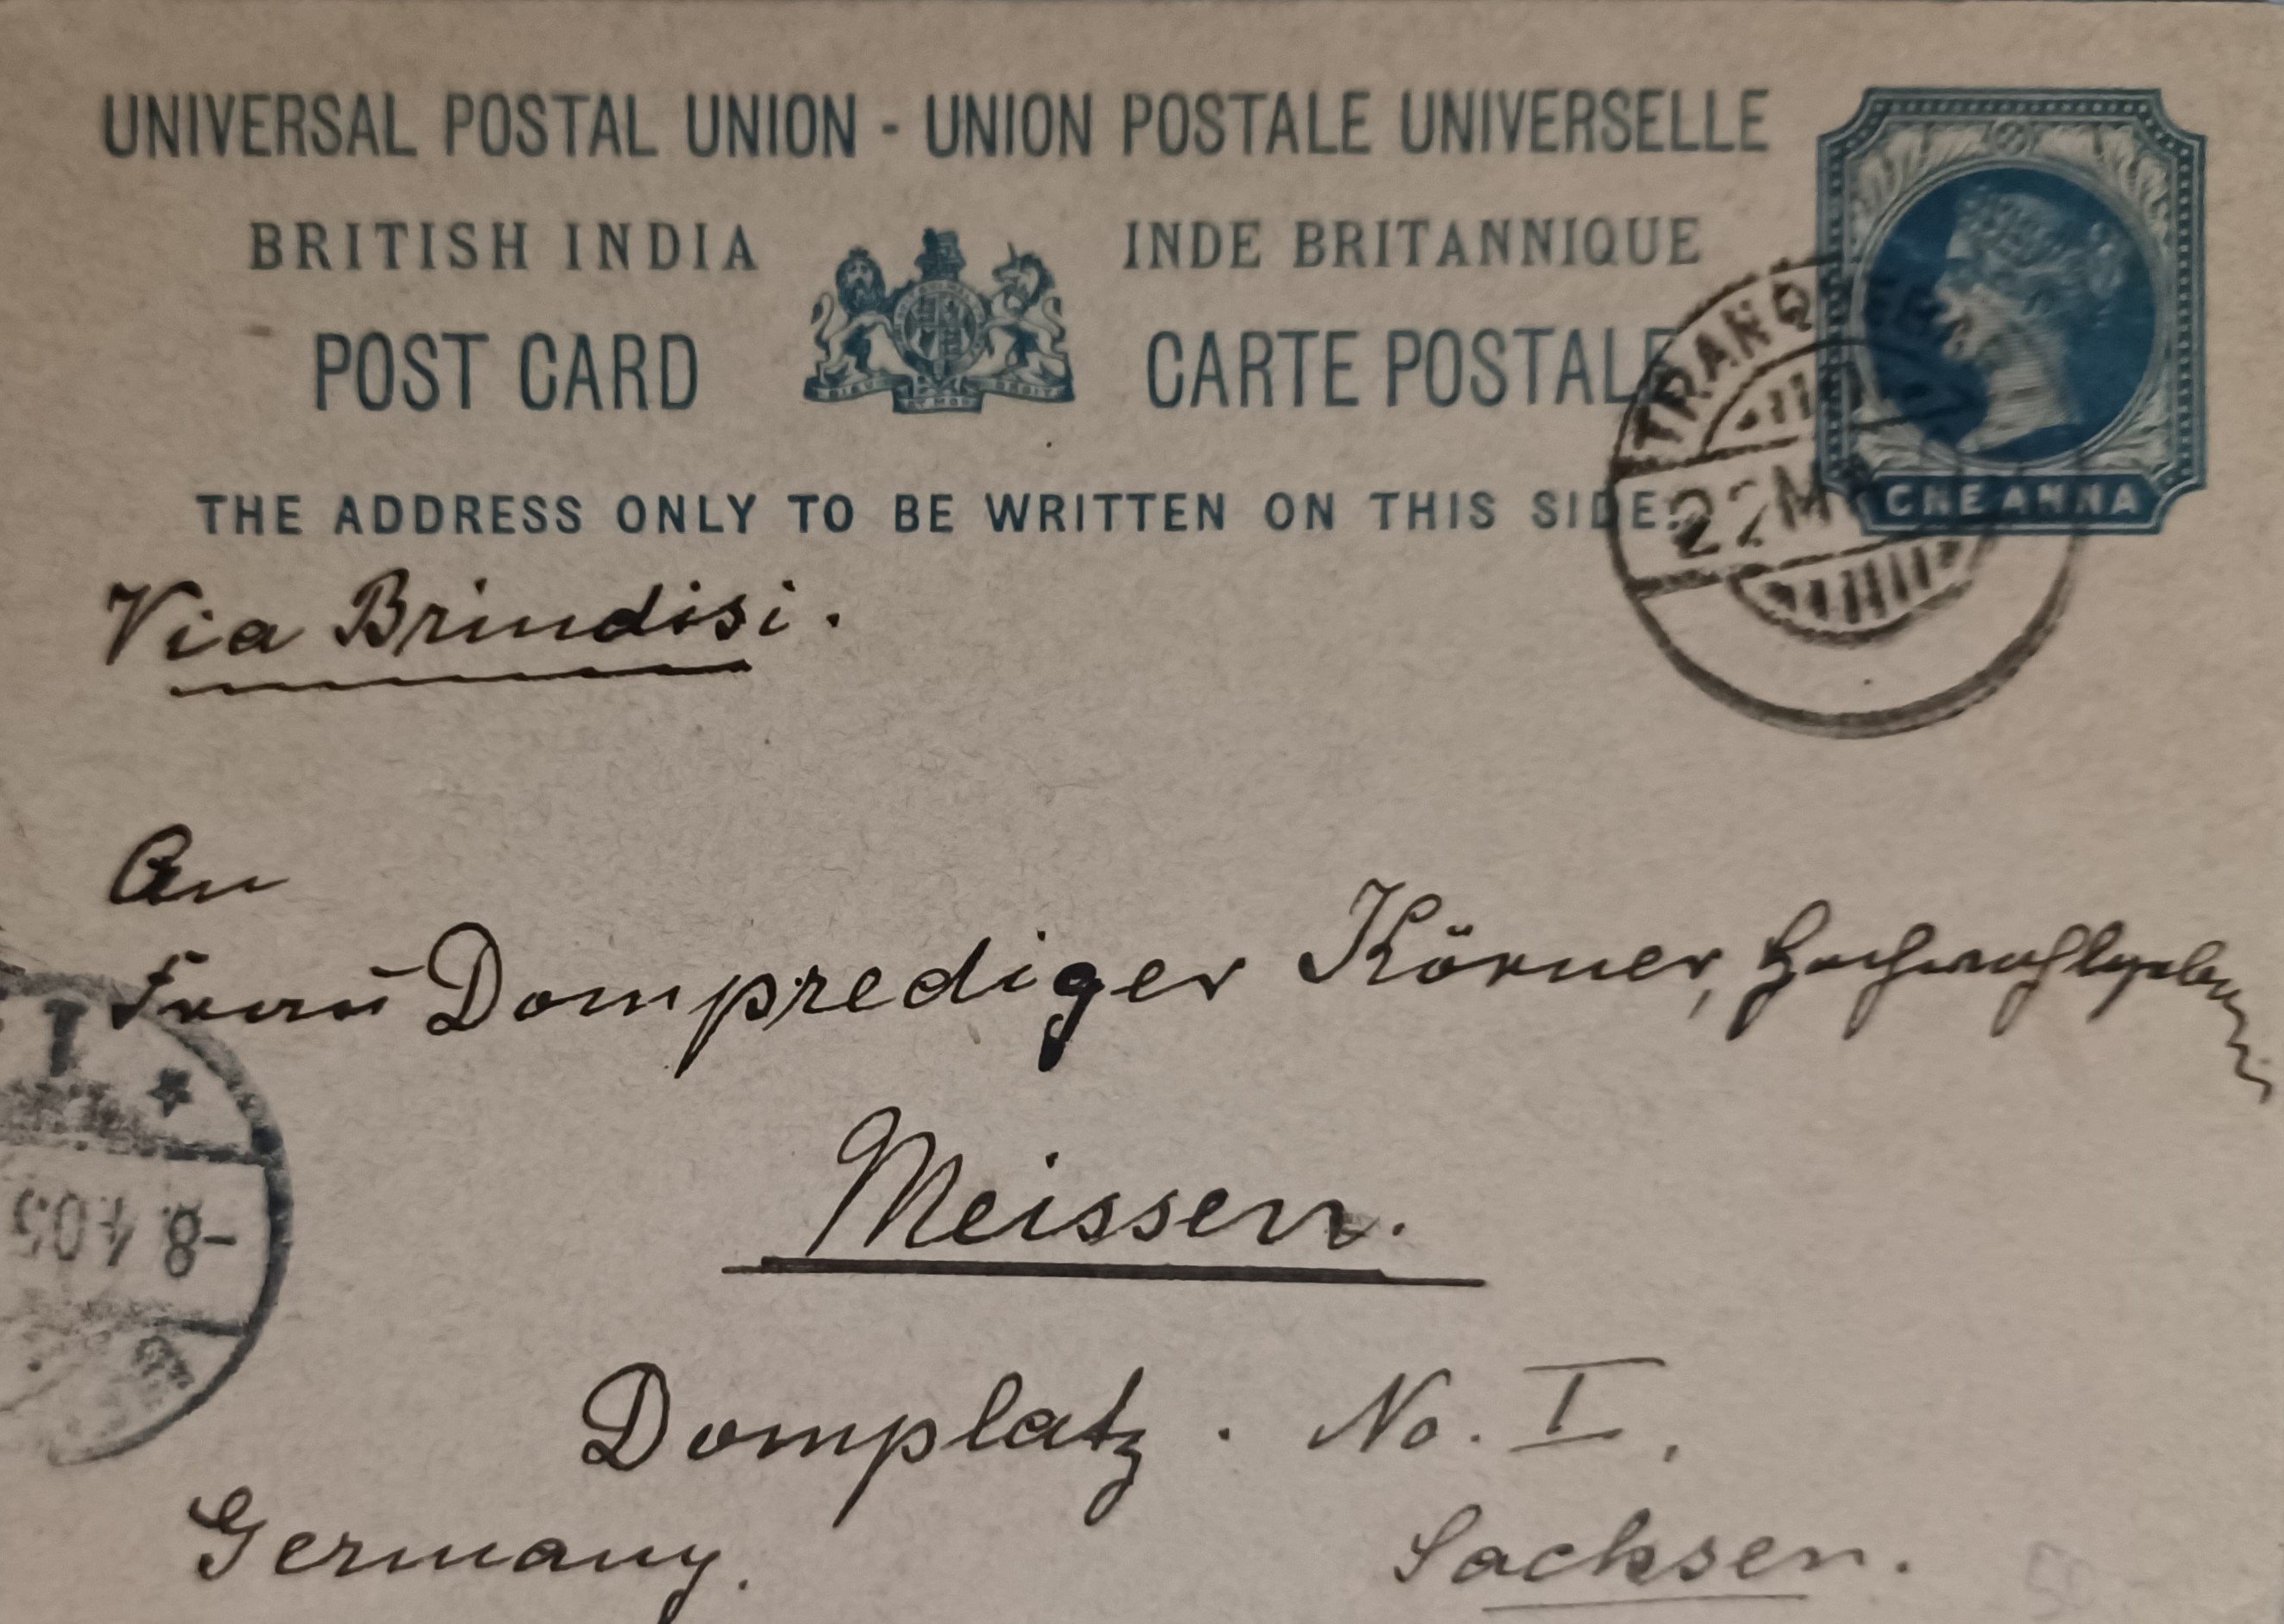 UNIVERSAL POSTAL UNION - UNION POSTALE UNIVERSELLE
BRITISH INDIA INDE BRITANNIQUE
POST CARD CARTE POSTALE
THE ADDRESS ONLY TO BE WRITTEN ON THIS SIDE.
ONE ANNA
22 M
Via Brindisi.
An
Frau Domprediger Körner, Hochwohlgeboren
Meissen.
Domplatz. No. I.
Germany. Sachsen.